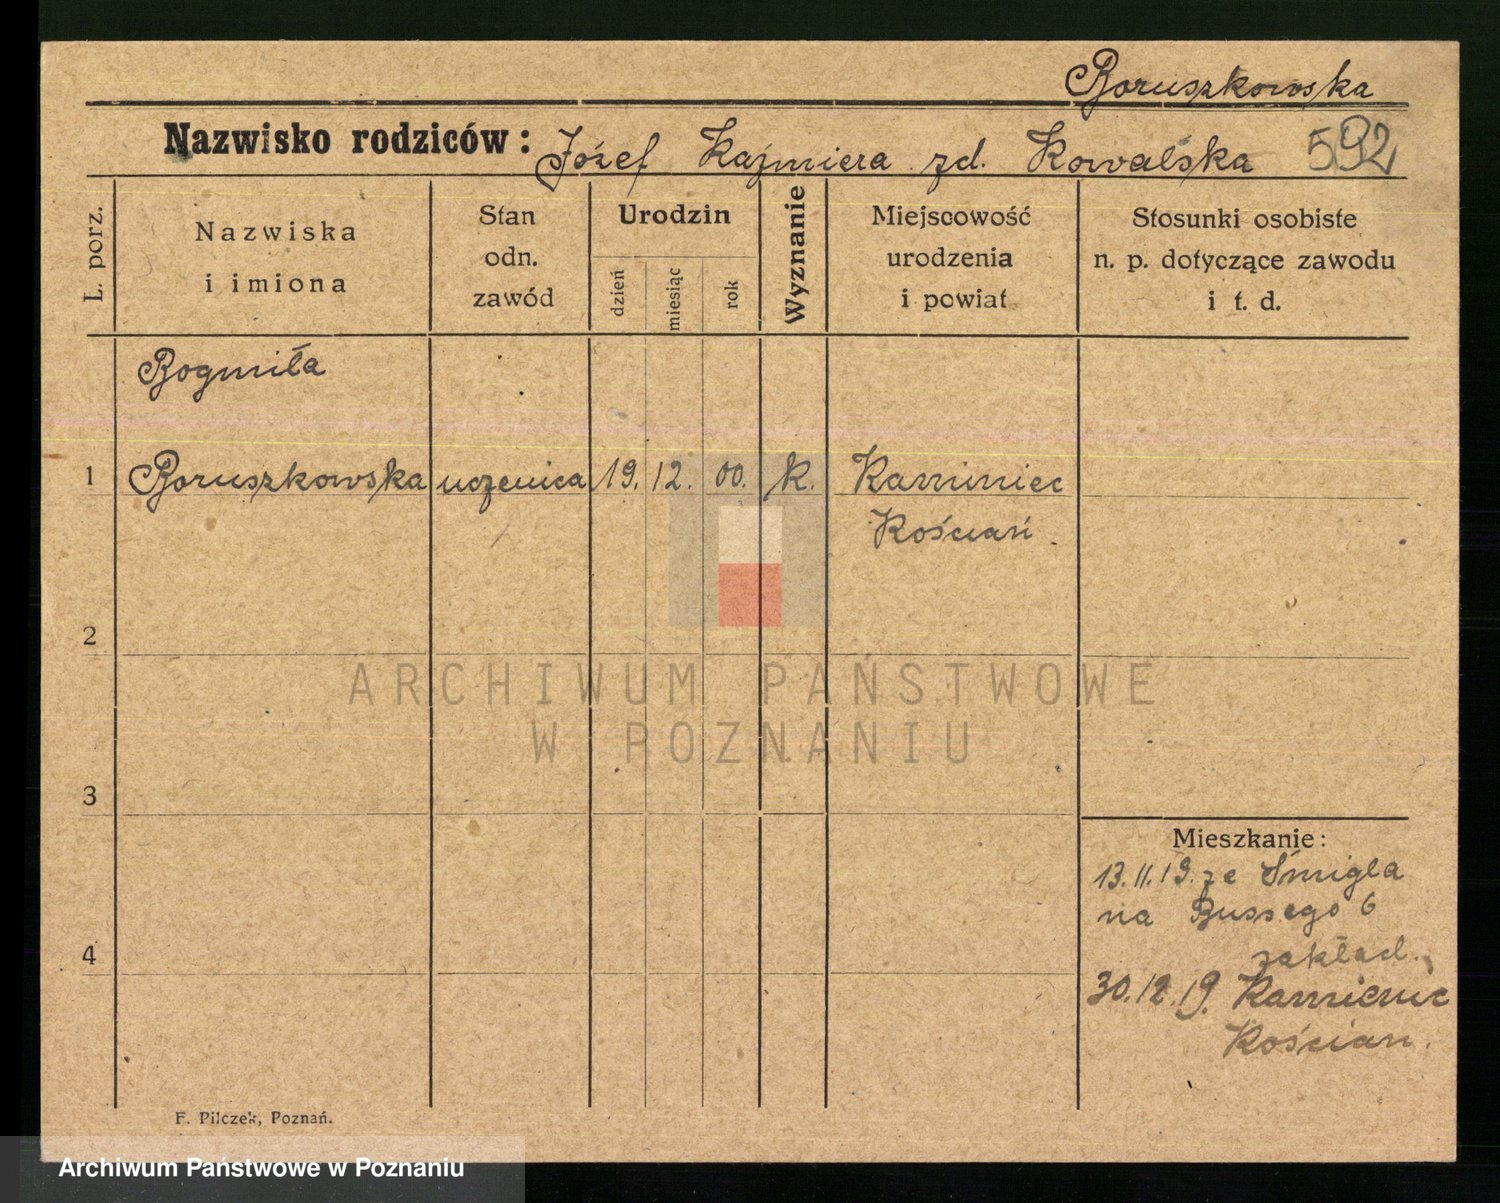 Boruszkowska
Nazwisko rodziców: Józef Kaźmiera zd. Kowalska 592
L. porz.
Nazwiska
i imiona
Stan
odn.
zawód
Urodzin
dzień
miesiąc
rok
Wyznanie
Miejscowość
urodzenia
i powiat
Stosunki osobiste
n. p. dotyczące zawodu
i t. d.
Bogmiła
1 Boruszkowska uczenica 19. 12. 00. k. Kaminiec
Kościań
2
ARCHIWUM PAŃSTWOWE
W POZNANIU
3
Mieszkanie:
13.11.19. ze Śmigla
na Bussego 6
4 zakład.
30.12.19. Kamieniec
Kościan.
F. Pilczek, Poznań.
Archiwum Państwowe w Poznaniu